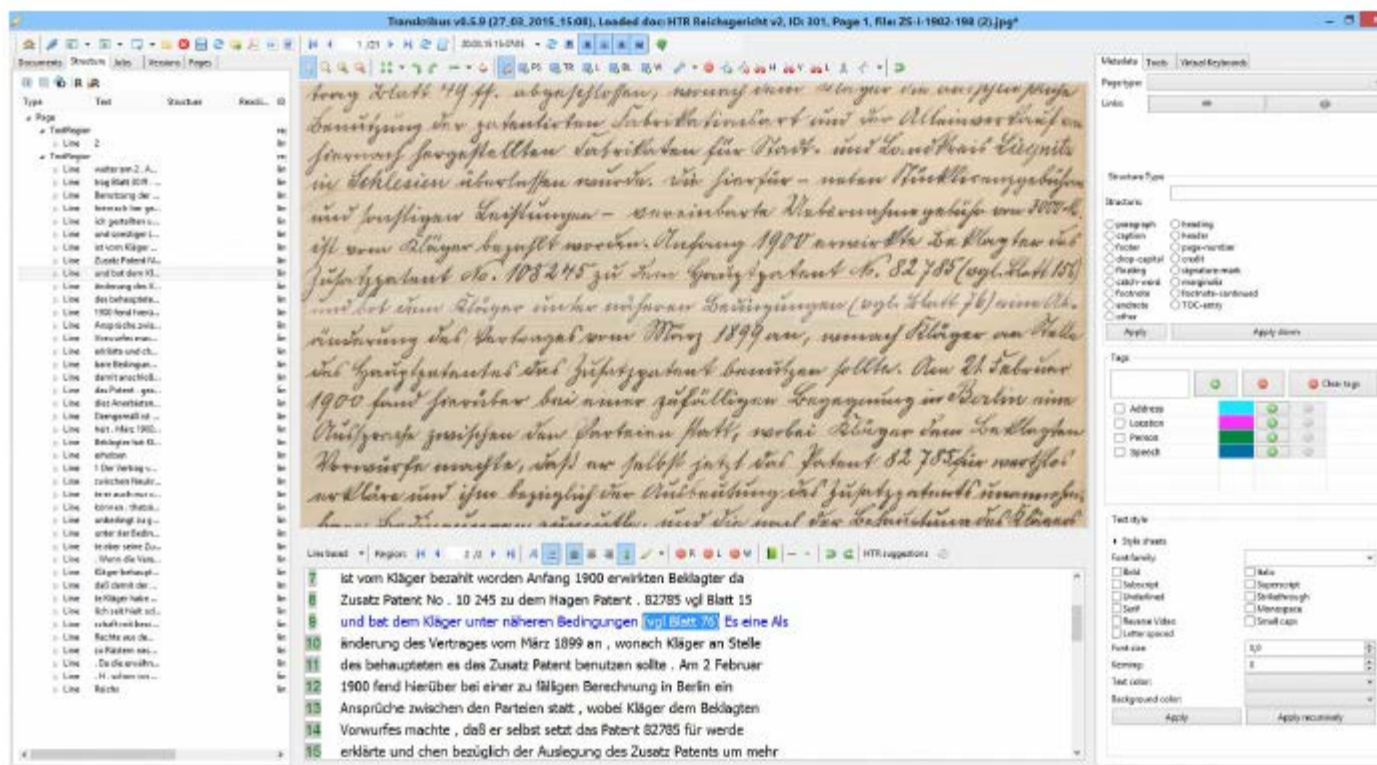 Transkribus v0.5.9 (27_03_2015_15:08), Loaded doc: HTR Reichsgericht v2, ID: 301, Page 1, file: ZS-I-1902-198 (2).jpg*
Documents Structure Jobs Versions Pages
Type Text Structure ID
Page
TextRegion
Line 2
TextRegion
Line weiter am 2. A...
Line
Line Benutzung der ...
Line
Line
Line und sonstiger L...
Line ist vom Kläger ...
Line Zusatz Patent N...
Line und bat dem Kl...
Line änderung des V...
Line des behauptete...
Line 1900 fend hierü...
Line Ansprüche zwis...
Line Vorwurfes mac...
Line erklärte und ch...
Line bare Bedingun...
Line damit anschloß...
Line das Patent . gez...
Line dies Anerbieten...
Line Demgemäß ist ...
Line
Line Beklagter hat Kl...
Line erhoben
Line 1 Der Vertrag v...
Line
Line te er auch nur v...
Line
Line unbedingt zu g...
Line unter der Bedin...
Line te aber seine Zu...
Line . Wenn die Vera...
Line Kläger behaupt...
Line daß damit der ...
Line te Kläger habe ...
Line
Line
Line Rechte aus de...
Line
Line . Da die erwähn...
Line
Line Reichs
trag Blatt 49 ff. abgeschlossen, wonach dem Kläger die ausschließliche
Benutzung der patentirten Fabrikationsart und der Alleinverkauf
hiernach hergestellten Fabrikaten für Stadt- und Landkreis Liegnitz
in Schlesien überlassen wurde. Die hierfür – neben Stücklizenzgebühren
und sonstigen Leistungen – vereinbarte Uebernahmegebühr von 3000 M.
ist vom Kläger bezahlt worden. Anfang 1900 erwirkte Beklagter das
Zusatzpatent No. 108245 zu dem Hauptpatent No. 82785 (vgl. Blatt 15b)
und bot dem Kläger unter näheren Bedingungen (vgl. Blatt 76) eine Ab-
änderung des Vertrages vom März 1899 an, wonach Kläger an Stelle
des Hauptpatentes das Zusatzpatent benutzen sollte. Am 21. Februar
1900 fand hierüber bei einer zufälligen Begegnung in Berlin eine
Aussprache zwischen den Parteien statt, wobei Kläger dem Beklagten
Vorwürfe machte, daß er selbst jetzt das Patent 82785 für wertlos
erkläre und ihm bezüglich der Ausbeutung des Zusatzpatents unannehm
bare Bedingungen zumutete, und die nach der Behauptung des Klägers
Line based Region: HTR suggestions
7 ist vom Kläger bezahlt worden Anfang 1900 erwirkten Beklagter da
8 Zusatz Patent No . 10 245 zu dem Hagen Patent . 82785 vgl Blatt 15
9 und bat dem Kläger unter näheren Bedingungen (vgl Blatt 76) Es eine Als
10 änderung des Vertrages vom März 1899 an , wonach Kläger an Stelle
11 des behaupteten es das Zusatz Patent benutzen sollte . Am 2 Februar
12 1900 fend hierüber bei einer zu fälligen Berechnung in Berlin ein
13 Ansprüche zwischen den Parteien statt , wobei Kläger dem Beklagten
14 Vorwurfes machte , daß er selbst setzt das Patent 82785 für werde
15 erklärte und chen bezüglich der Auslegung des Zusatz Patents um mehr
Metadata Tools Virtual Keyboards
Page type:
Links:
Structure Type
Structure:
paragraph heading
caption header
footer page-number
drop-capital credit
floating signature-mark
catch-word marginalia
footnote footnote-continued
endnote TOC-entry
other
Apply Apply down
Tags
Clear tags
Address
Location
Person
Speech
Text style
Style sheets
Font family:
Bold Italic
Subscript Superscript
Underlined Strikethrough
Serif Monospace
Reverse Video Small caps
Letter spaced
Font size: 0,0
Kerning: 0
Text color:
Background color:
Apply Apply recursively